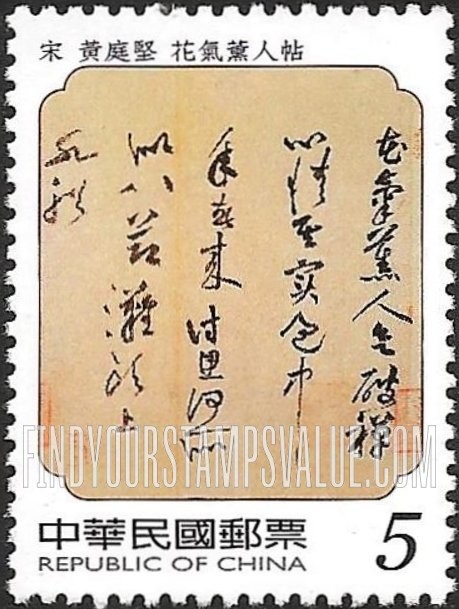 宋 黃庭堅 花氣薰人帖
花氣薰人欲破禪
心情其實過中
年春來詩思何所
似八節灘頭上
水船
FINDYOURSTAMPSVALUE.COM
中華民國郵票 5
REPUBLIC OF CHINA